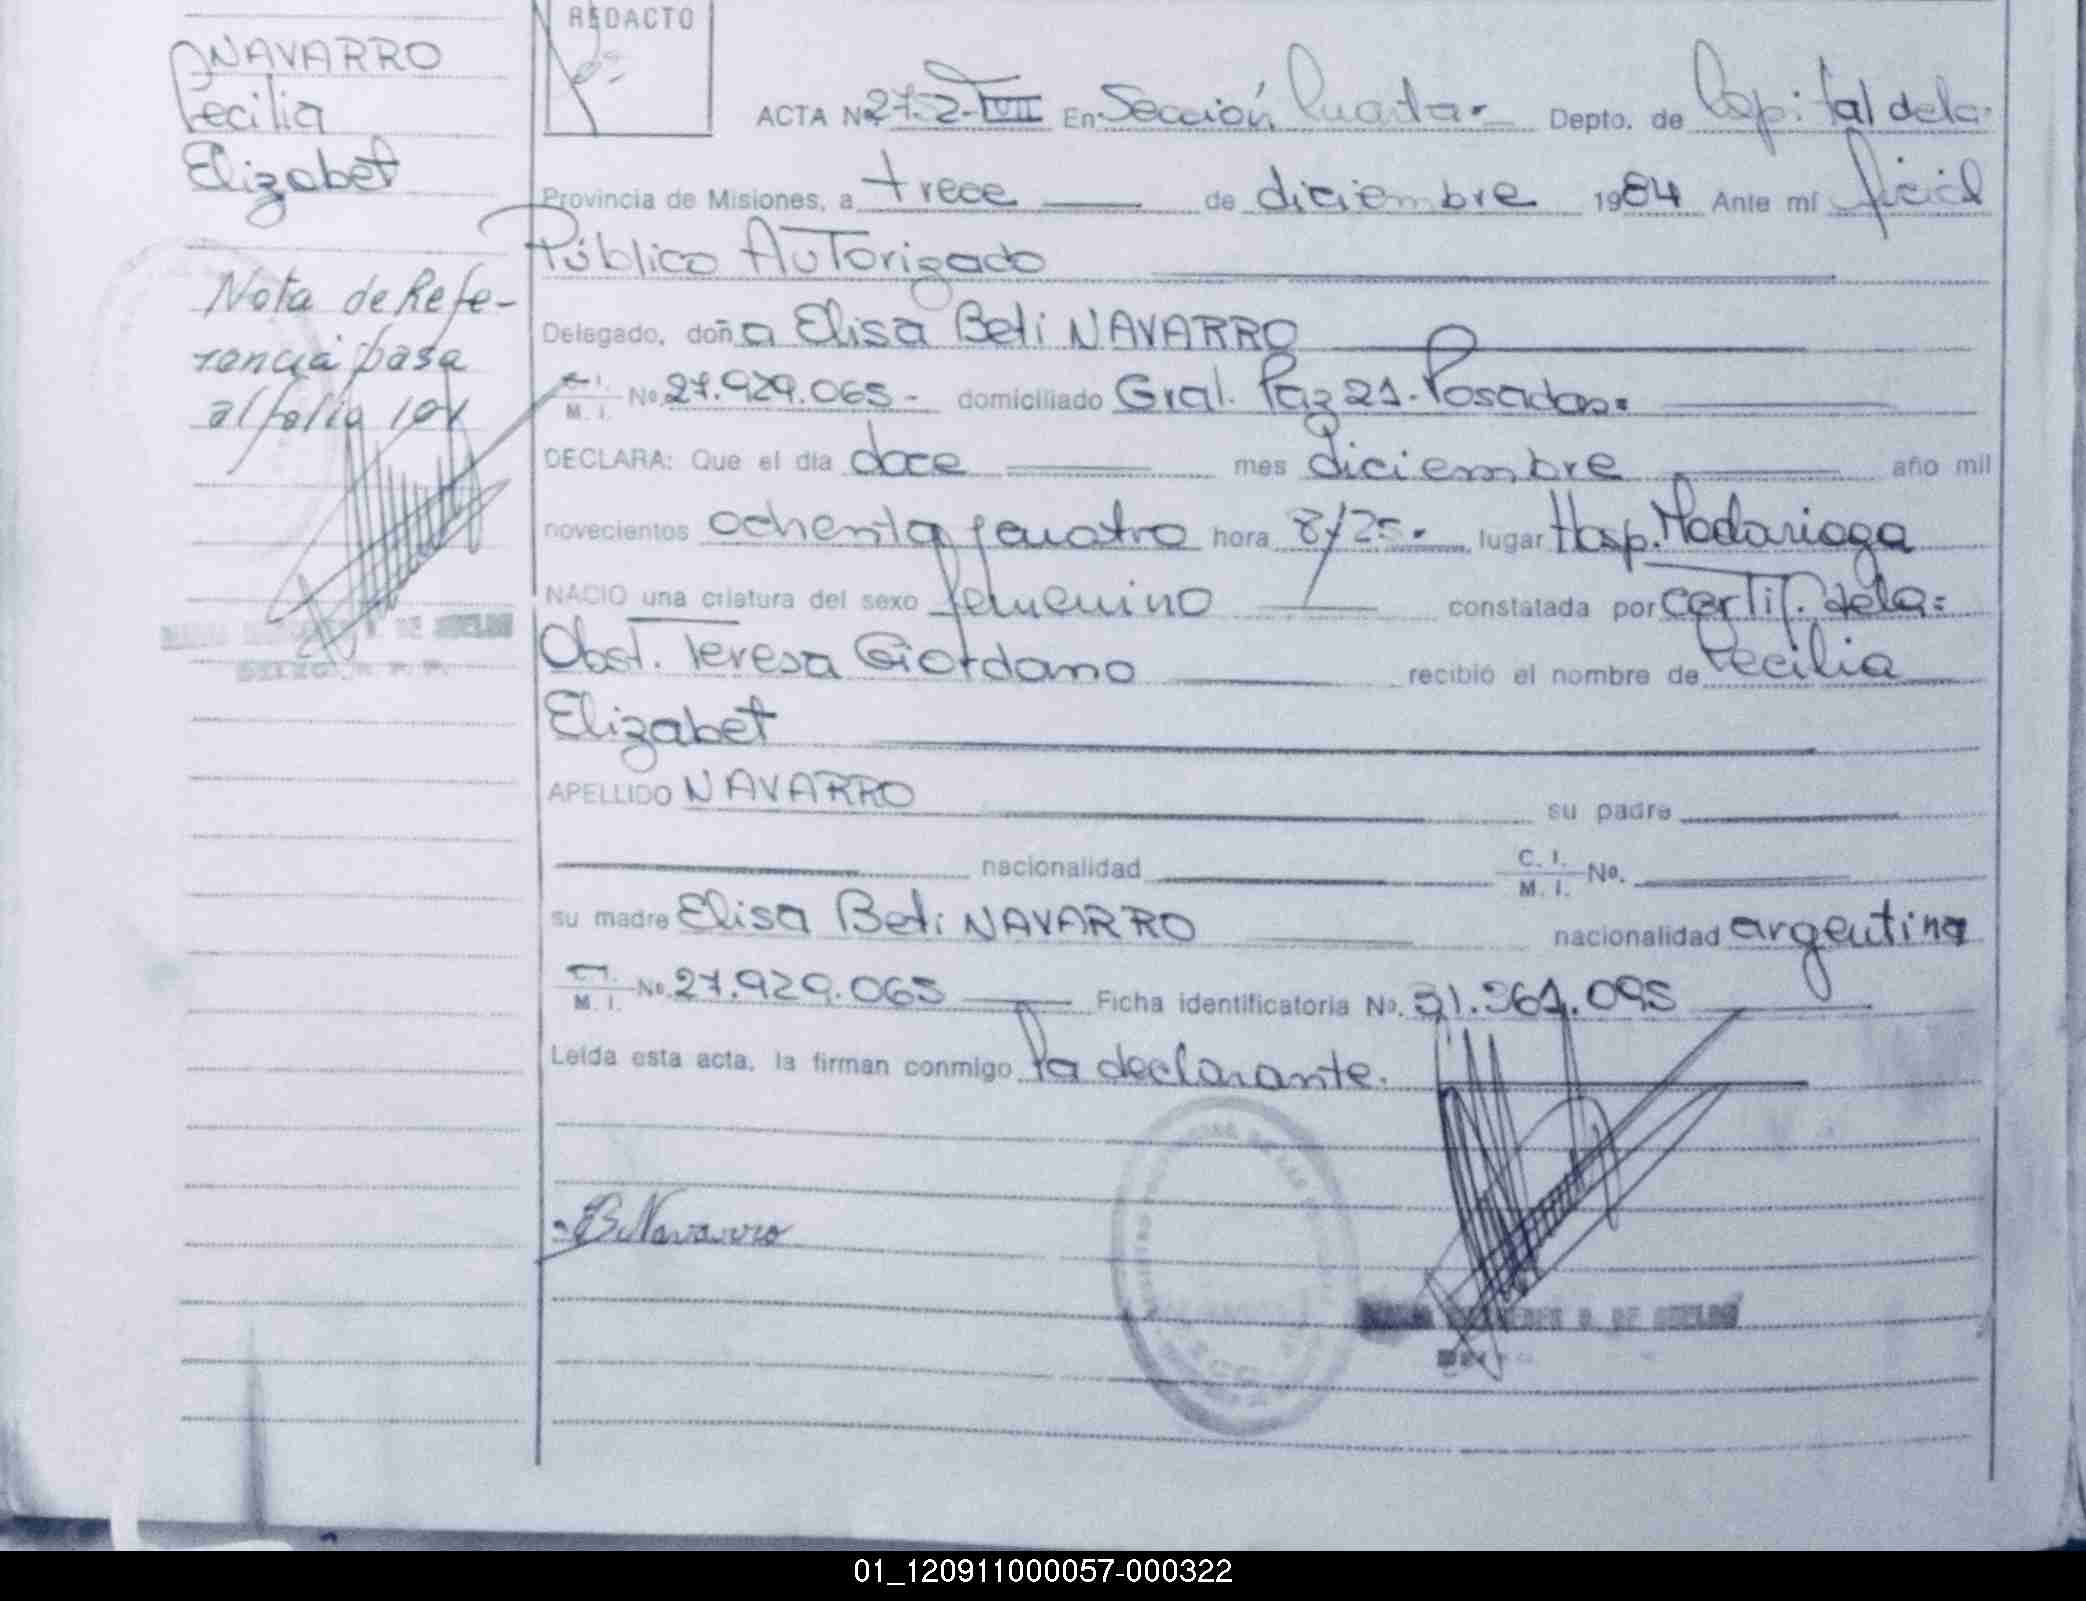 NAVARRO
Cecilia
Elizabet
Nota de Refe-
rencia pasa
al folio 101
REDACTO
ACTA Nº 272-VIII En Sección Cuarta.- Depto. de Capital de la-
Provincia de Misiones, a trece de diciembre 1984 Ante mí Oficial
Público Autorizado
Delegado, doña Elisa Beti NAVARRO
M. I. No. 27.929.065.- domiciliado Gral. Paz 21. Posadas.
DECLARA: Que el día doce mes diciembre año mil
novecientos ochenta y cuatro hora 8/25.- lugar Hosp. Madariaga
NACIO una criatura del sexo femenino constatada por certif. de la=
Obst. Teresa Giordano recibió el nombre de Cecilia
Elizabet
APELLIDO NAVARRO su padre
nacionalidad C. I. M. I. No.
su madre Elisa Beti NAVARRO nacionalidad argentina
M. I. No. 27.929.065 Ficha identificatoria No. 31.361.095
Leída esta acta, la firman conmigo la declarante.
B. Navarro
01_120911000057-000322